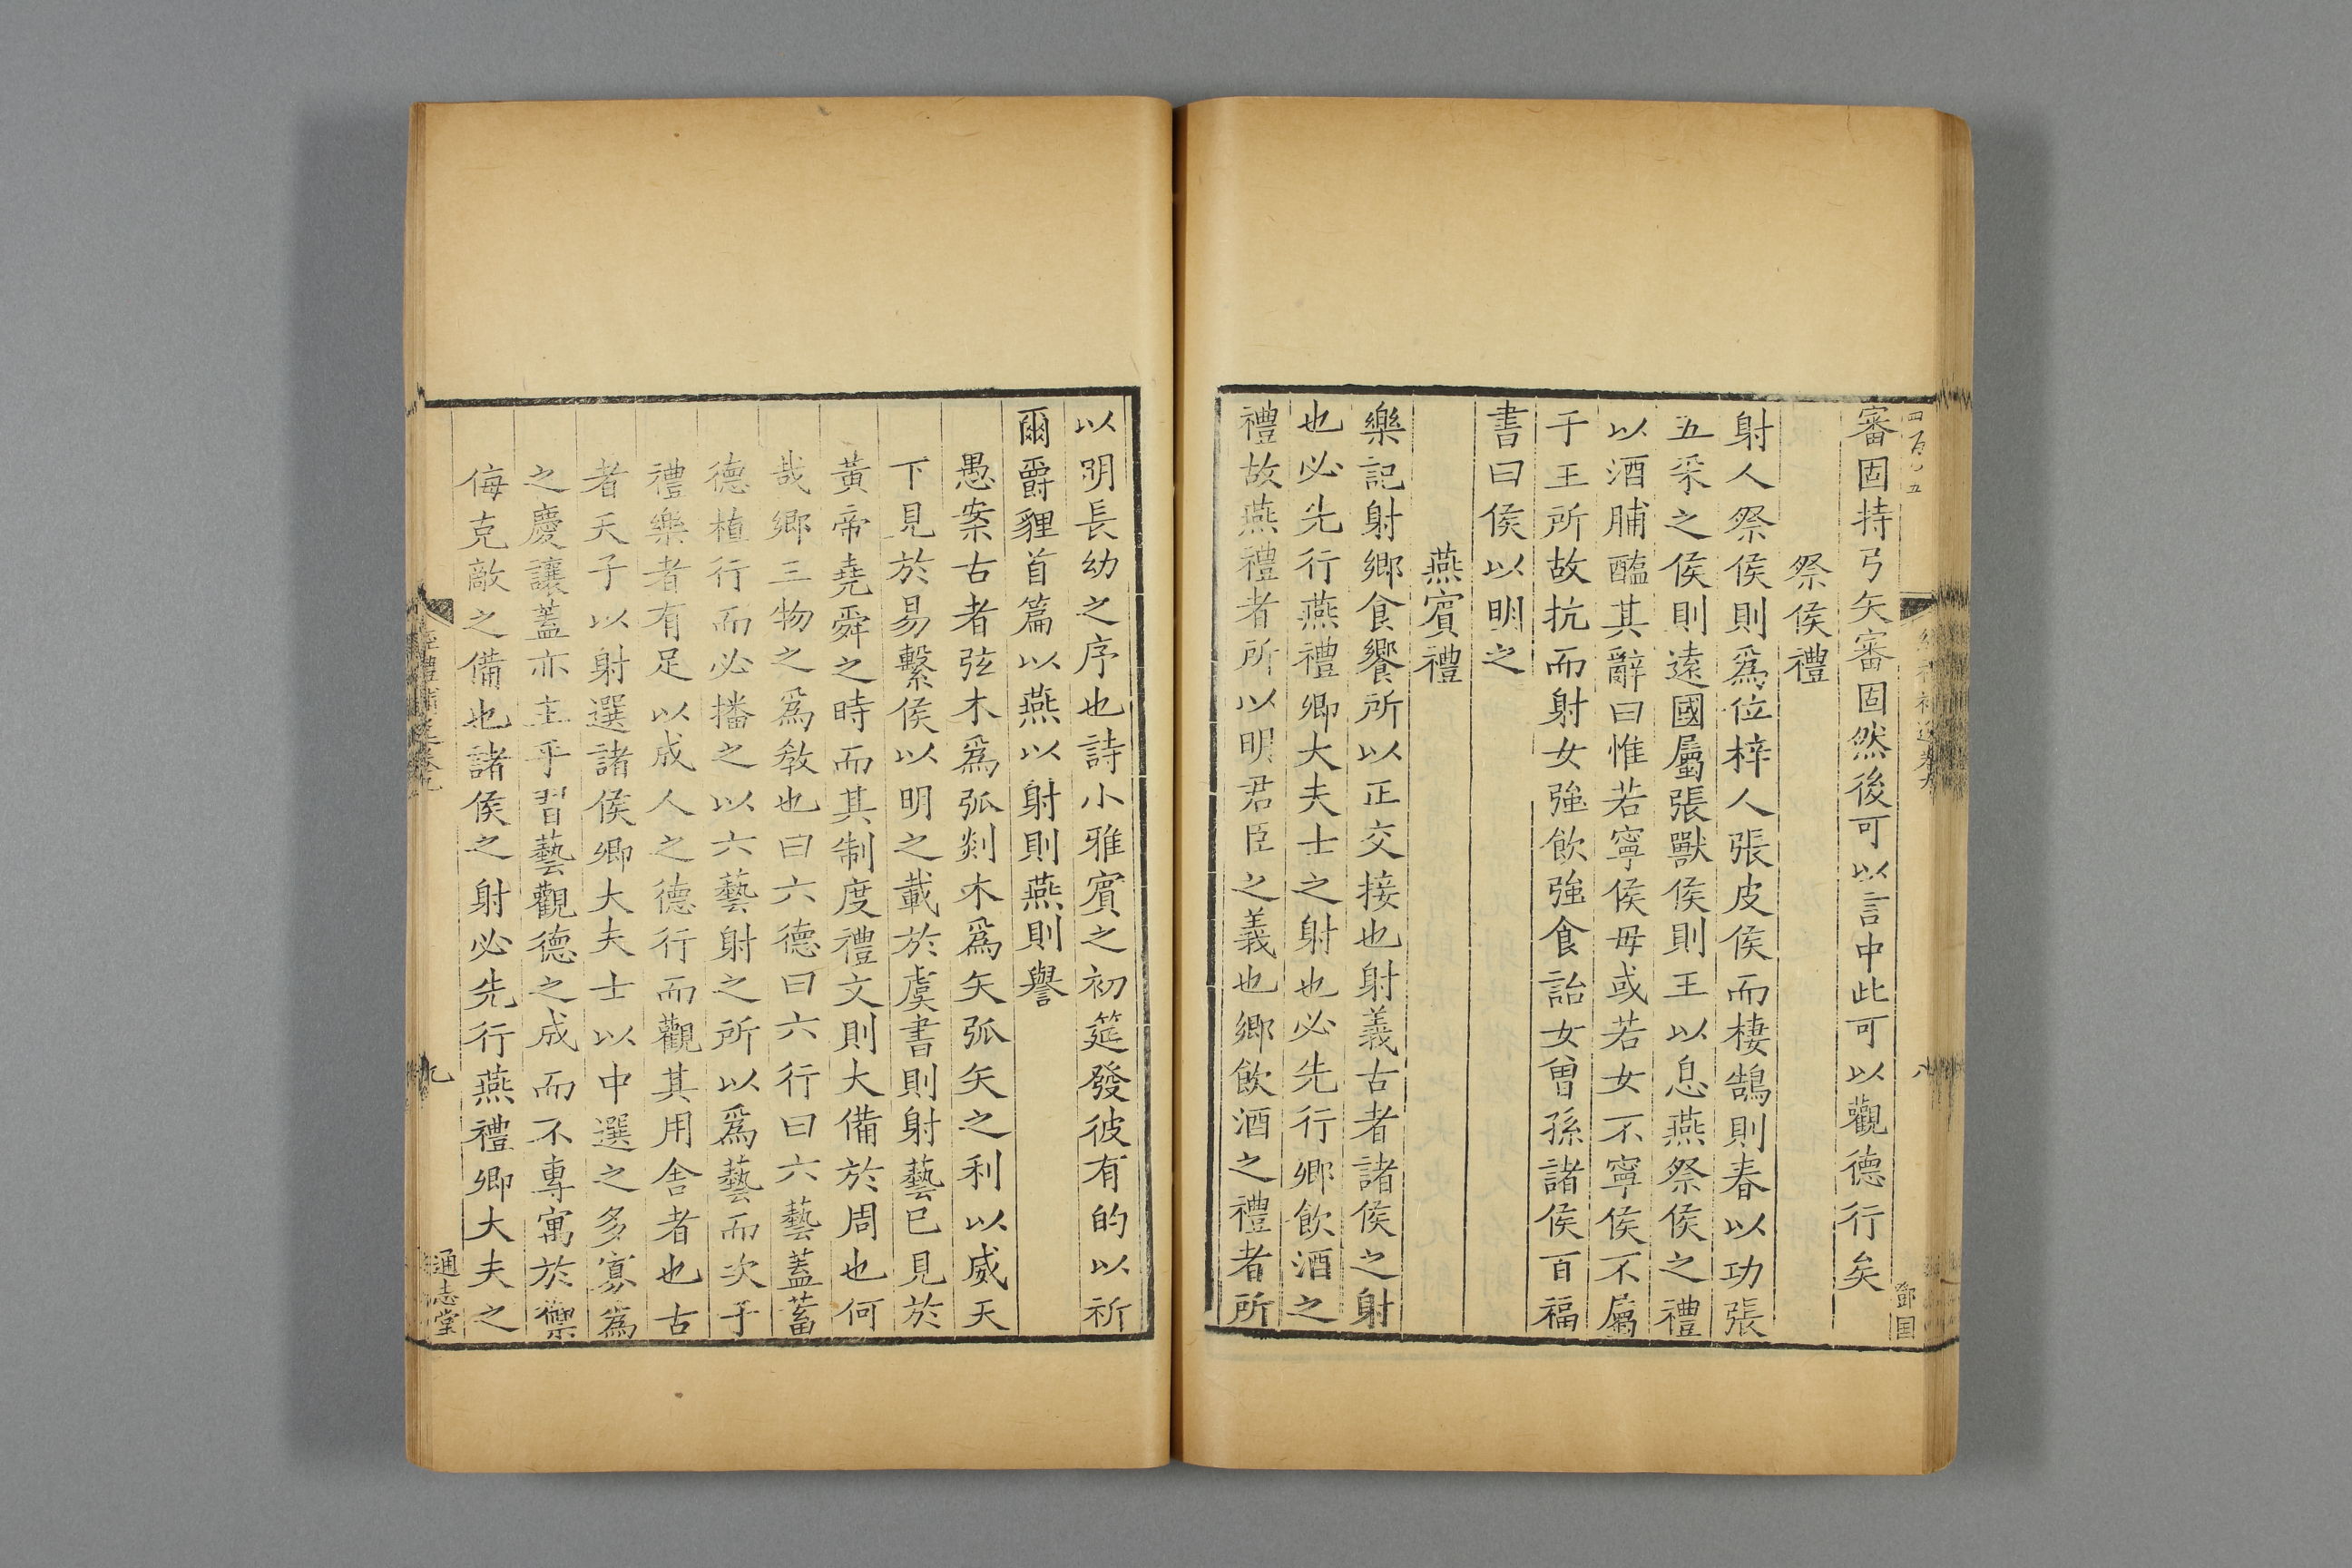 審固持弓矢審固然後可以言中此可以觀德行矣
祭侯禮
射人祭侯則爲位梓人張皮侯而棲鵠則春以功張
五采之侯則遠國屬張獸侯則王以息燕祭侯之禮
以酒脯醢其辭曰惟若寧侯毋或若女不寧侯不屬
于王所故抗而射女強飲強食詒女曾孫諸侯百福
書曰侯以明之
燕賓禮
樂記射鄉食饗所以正交接也射義古者諸侯之射
也必先行燕禮卿大夫士之射也必先行鄉飲酒之
禮故燕禮者所以明君臣之義也鄉飲酒之禮者所
以明長幼之序也詩小雅賓之初筵發彼有的以祈
爾爵貍首篇以燕以射則燕則譽
愚案古者弦木爲弧剡木爲矢弧矢之利以威天
下見於易繫侯以明之載於虞書則射藝已見於
黃帝堯舜之時而其制度禮文則大備於周也何
哉鄉三物之爲敎也曰六德曰六行曰六藝蓋蓄
德植行而必播之以六藝射之所以爲藝而次于
禮樂者有足以成人之德行而觀其用舍者也古
者天子以射選諸侯卿大夫士以中選之多寡爲
之慶讓蓋亦主乎習藝觀德之成而不專寓於禦
侮克敵之備也諸侯之射必先行燕禮卿大夫之
通志堂